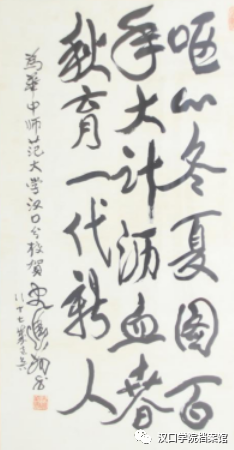 呕心冬夏图百
年大计沥血春
秋育一代新人
为华中师范大学汉口分校贺
汉口学院档案馆